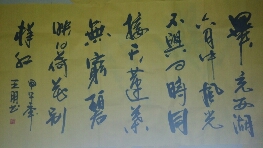 畢竟西湖
六月中風光
不與四時同
接天蓮葉
無窮碧
映日荷花別
樣紅
甲午年